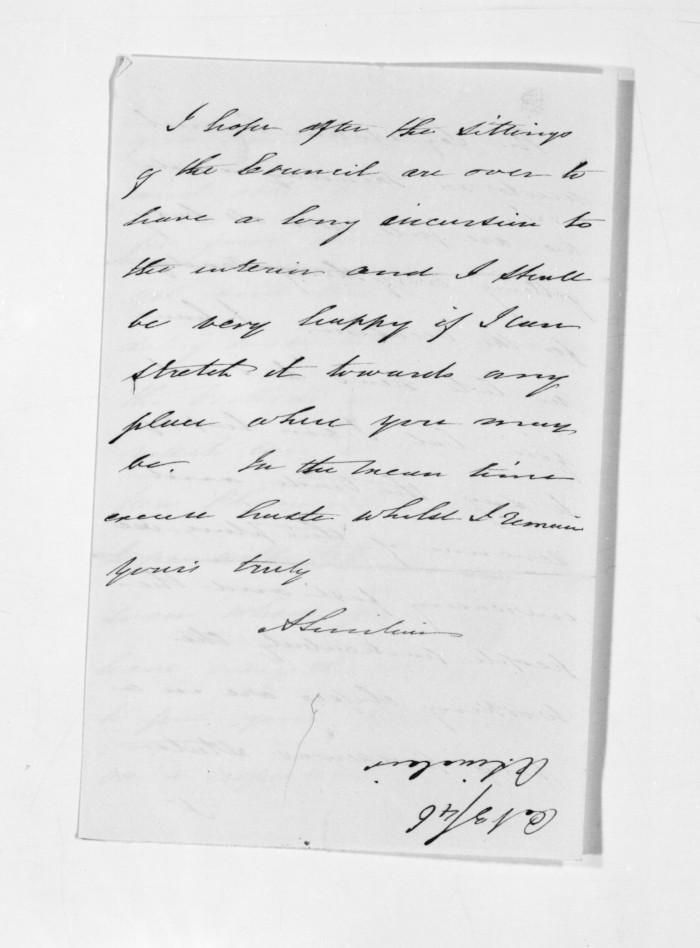 I hope after the sittings
of the Council are over to
have a long incursion to
the interior and I shall
be very happy if I can
stretch it towards any
place where you may
be. In the mean time
excuse haste whilst I remain
yours truly
A Sinclair
A Sinclair
Oct 3/46